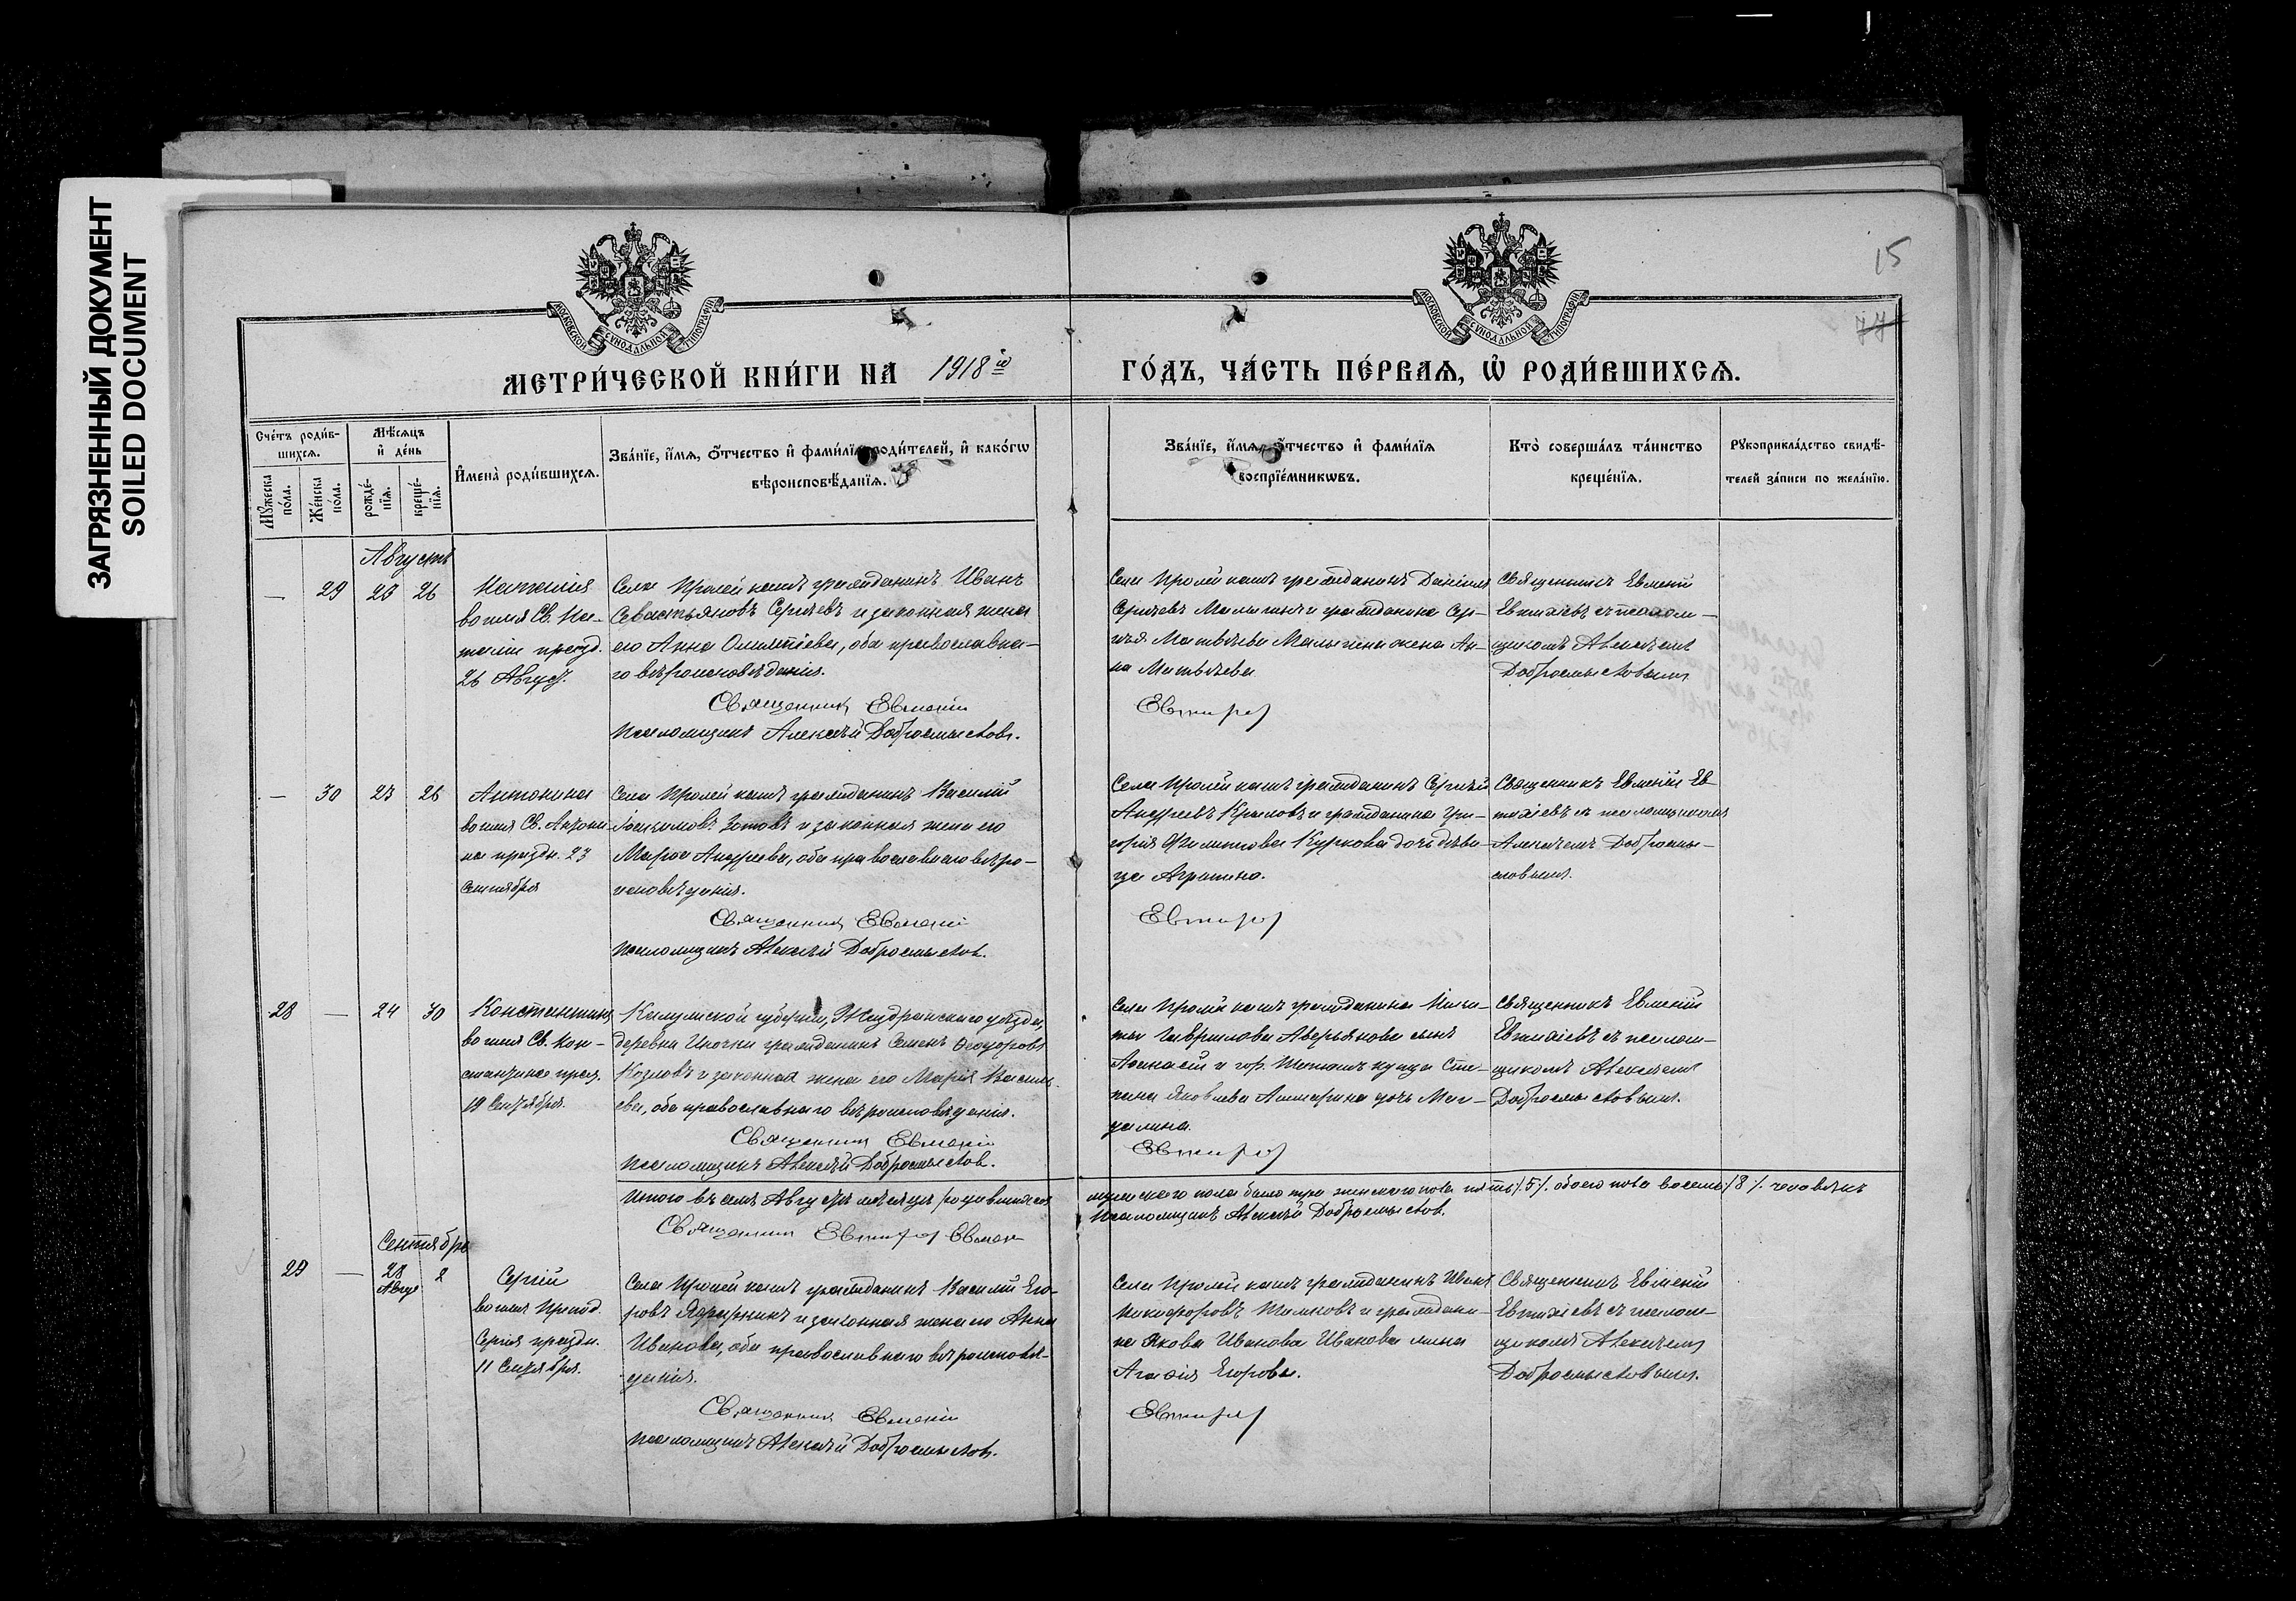 ЗАГРЯЗНЕННЫЙ ДОКУМЕНТ
SOILED DOCUMENT
15
77
МОСКОВСКОЙ СѴНОДАЛЬНОЙ ТИПОГРАФІИ
МОСКОВСКОЙ СѴНОДАЛЬНОЙ ТИПОГРАФІИ
МЕТРИ́ЧЕСКОЙ КНИ́ГИ НА 1918го
ГО́ДЪ, ЧА́СТЬ ПЕ́РВАѦ, Ѡ҆ РОДИ́ВШИХСѦ.
Сче́тъ роди́в-
шихсѧ.
Мꙋ́жеска по́ла.
Же́нска по́ла.
Мѣ́сѧцъ
и҆ де́нь
рожде́-
нїѧ.
креще́-
нїѧ.
И҆мена̀ роди́вшихсѧ.
Зва́нїе, и҆́мѧ, ѻ҆́тчество и҆ фами́лїѧ роди́телей, и҆ како́гѡ
вѣроисповѣ́данїѧ.
Зва́нїе, и҆́мѧ, ѻ҆́тчество и҆ фами́лїѧ
воспрїе́мникѡвъ.
Кто̀ соверша́лъ та́инство
креще́нїѧ.
Рꙋкоприкла́дство свидѣ́-
телей за́писи по жела́нїю.
Августъ
— 29 23 26
Наталия
во имя Св. На-
талiи празд.
26 Август.
гражданинъ Иванъ
Севастьяновъ Сергѣевъ и законная жена
его Анна, оба православна-
го вѣроисповѣданія.
Священникъ Евменій
Псаломщикъ Алексѣй Добросмысловъ.
гражданинъ Даніилъ
Сергѣевъ Малыгинъ и гражданина Сер-
гѣя Матвѣева Малыгина жена Ан-
на Матвѣева
Евтихіев
Священникъ Евменій
Евтихіевъ съ псалом-
щикомъ Алексѣемъ
Добросмысловымъ
— 30 23 26
Антонина
во имя Св. Антони-
на праздн. 23
Сентября
гражданинъ Василій
Зотовъ и законная жена его
Марѳа Андреева, оба православнаго вѣро-
исповѣданія.
Священникъ Евменій
Псаломщикъ Алексѣй Добросмыслов.
гражданинъ Сергѣй
Андреевъ Крыловъ и гражданина Гри-
горія Филиппова Куркова дочь дѣви-
ца Агрипина.
Евтихіев
Священникъ Евменій Ев-
тихіевъ съ псаломщикомъ
Алексѣемъ Добросмы-
словымъ.
28 — 24 30
Константинъ
во имя Св. Кон-
стантина праз.
19 Сентября.
Калужской губерніи, Жиздринскаго уѣзда,
деревни Иночки гражданинъ Семенъ Ѳеодоровъ
Козловъ и законная жена его Марія Василь-
ева, оба православнаго вѣроисповѣданія.
Священникъ Евменій
Псаломщикъ Алексѣй Добросмыслов.
гражданина Ники-
ты Гаврилова Аверьянова сынъ
Аѳанасій и гор. купца Сте-
пана Яковлева дочь Маг-
далина.
Евтихіев
Священникъ Евменій
Евтихіевъ съ псалом-
щикомъ Алексѣемъ
Добросмысловымъ.
Итого въ семъ Августѣ мѣсяцѣ родившихся
мужескаго пола было три женскаго пола пять /5/. обоего пола восемь /8/. человѣкъ
Священник Евтихіев Евмен
Псаломщикъ Алексѣй Добросмыслов.
Сентябрь
29 — 28 2
Авгус
Сергій
во имя Препод.
Сергія праздн.
11 Сентября.
гражданинъ Василій Его-
ровъ и законная жена его Анна
Иванова, оба православнаго вѣроисповѣ-
данія.
Священник Евменій
Псаломщикъ Алексѣй Добросмысловъ.
гражданинъ Иванъ
Никифоровъ и граждани-
на Якова Иванова Иванова жена
Агаѳія Егорова.
Евтихіев
Священникъ Евменій
Евтихіевъ съ псалом-
щикомъ Алексѣемъ
Добросмысловымъ.